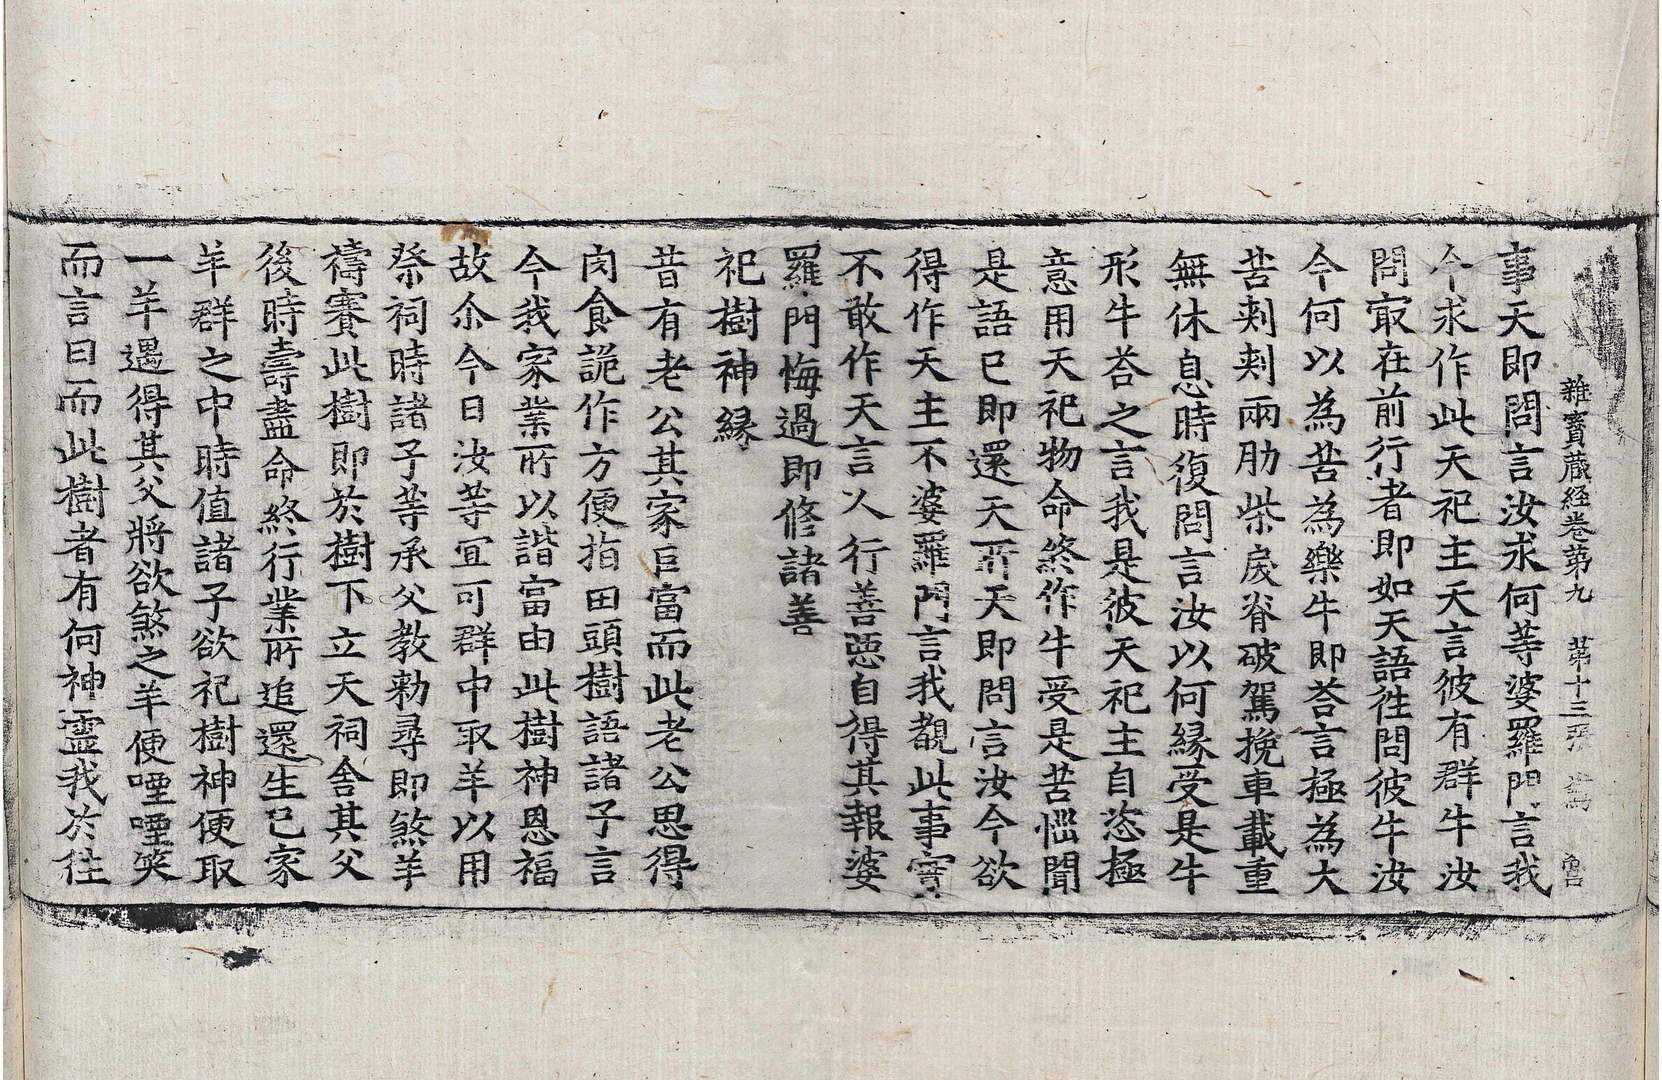 雜寶蔵経卷第九 第十三張
事天即問言汝求何等婆羅門言我
今求作此天祀主天言彼有群牛汝
問㝡在前行者即如天語徃問彼牛汝
今何以為苦為樂牛即荅言極為大
苦刾刾兩肋柴戾脊破駕挽車載重
無休息時復問言汝以何縁受是牛
形牛荅之言我是彼天祀主自恣極
意用天祀物命終作牛受是苦惱聞
是語已即還天所天即問言汝今欲
得作天主不婆羅門言我覩此事實
不敢作天言人行善惡自得其報婆
羅門悔過即修諸善
祀樹神縁
昔有老公其家巨富而此老公思得
肉食詭作方便指田頭樹語諸子言
今我家業所以諧富由此樹神恩福
故尒今日汝等冝可群中取羊以用
祭祠時諸子等承父教勑尋即煞羊
禱賽此樹即於樹下立天祠舍其父
後時壽盡命終行業所追還生己家
羊群之中時值諸子欲祀樹神便取
一羊遇得其父將欲煞之羊便㗌㗌笑
而言曰而此樹者有何神靈我於徃